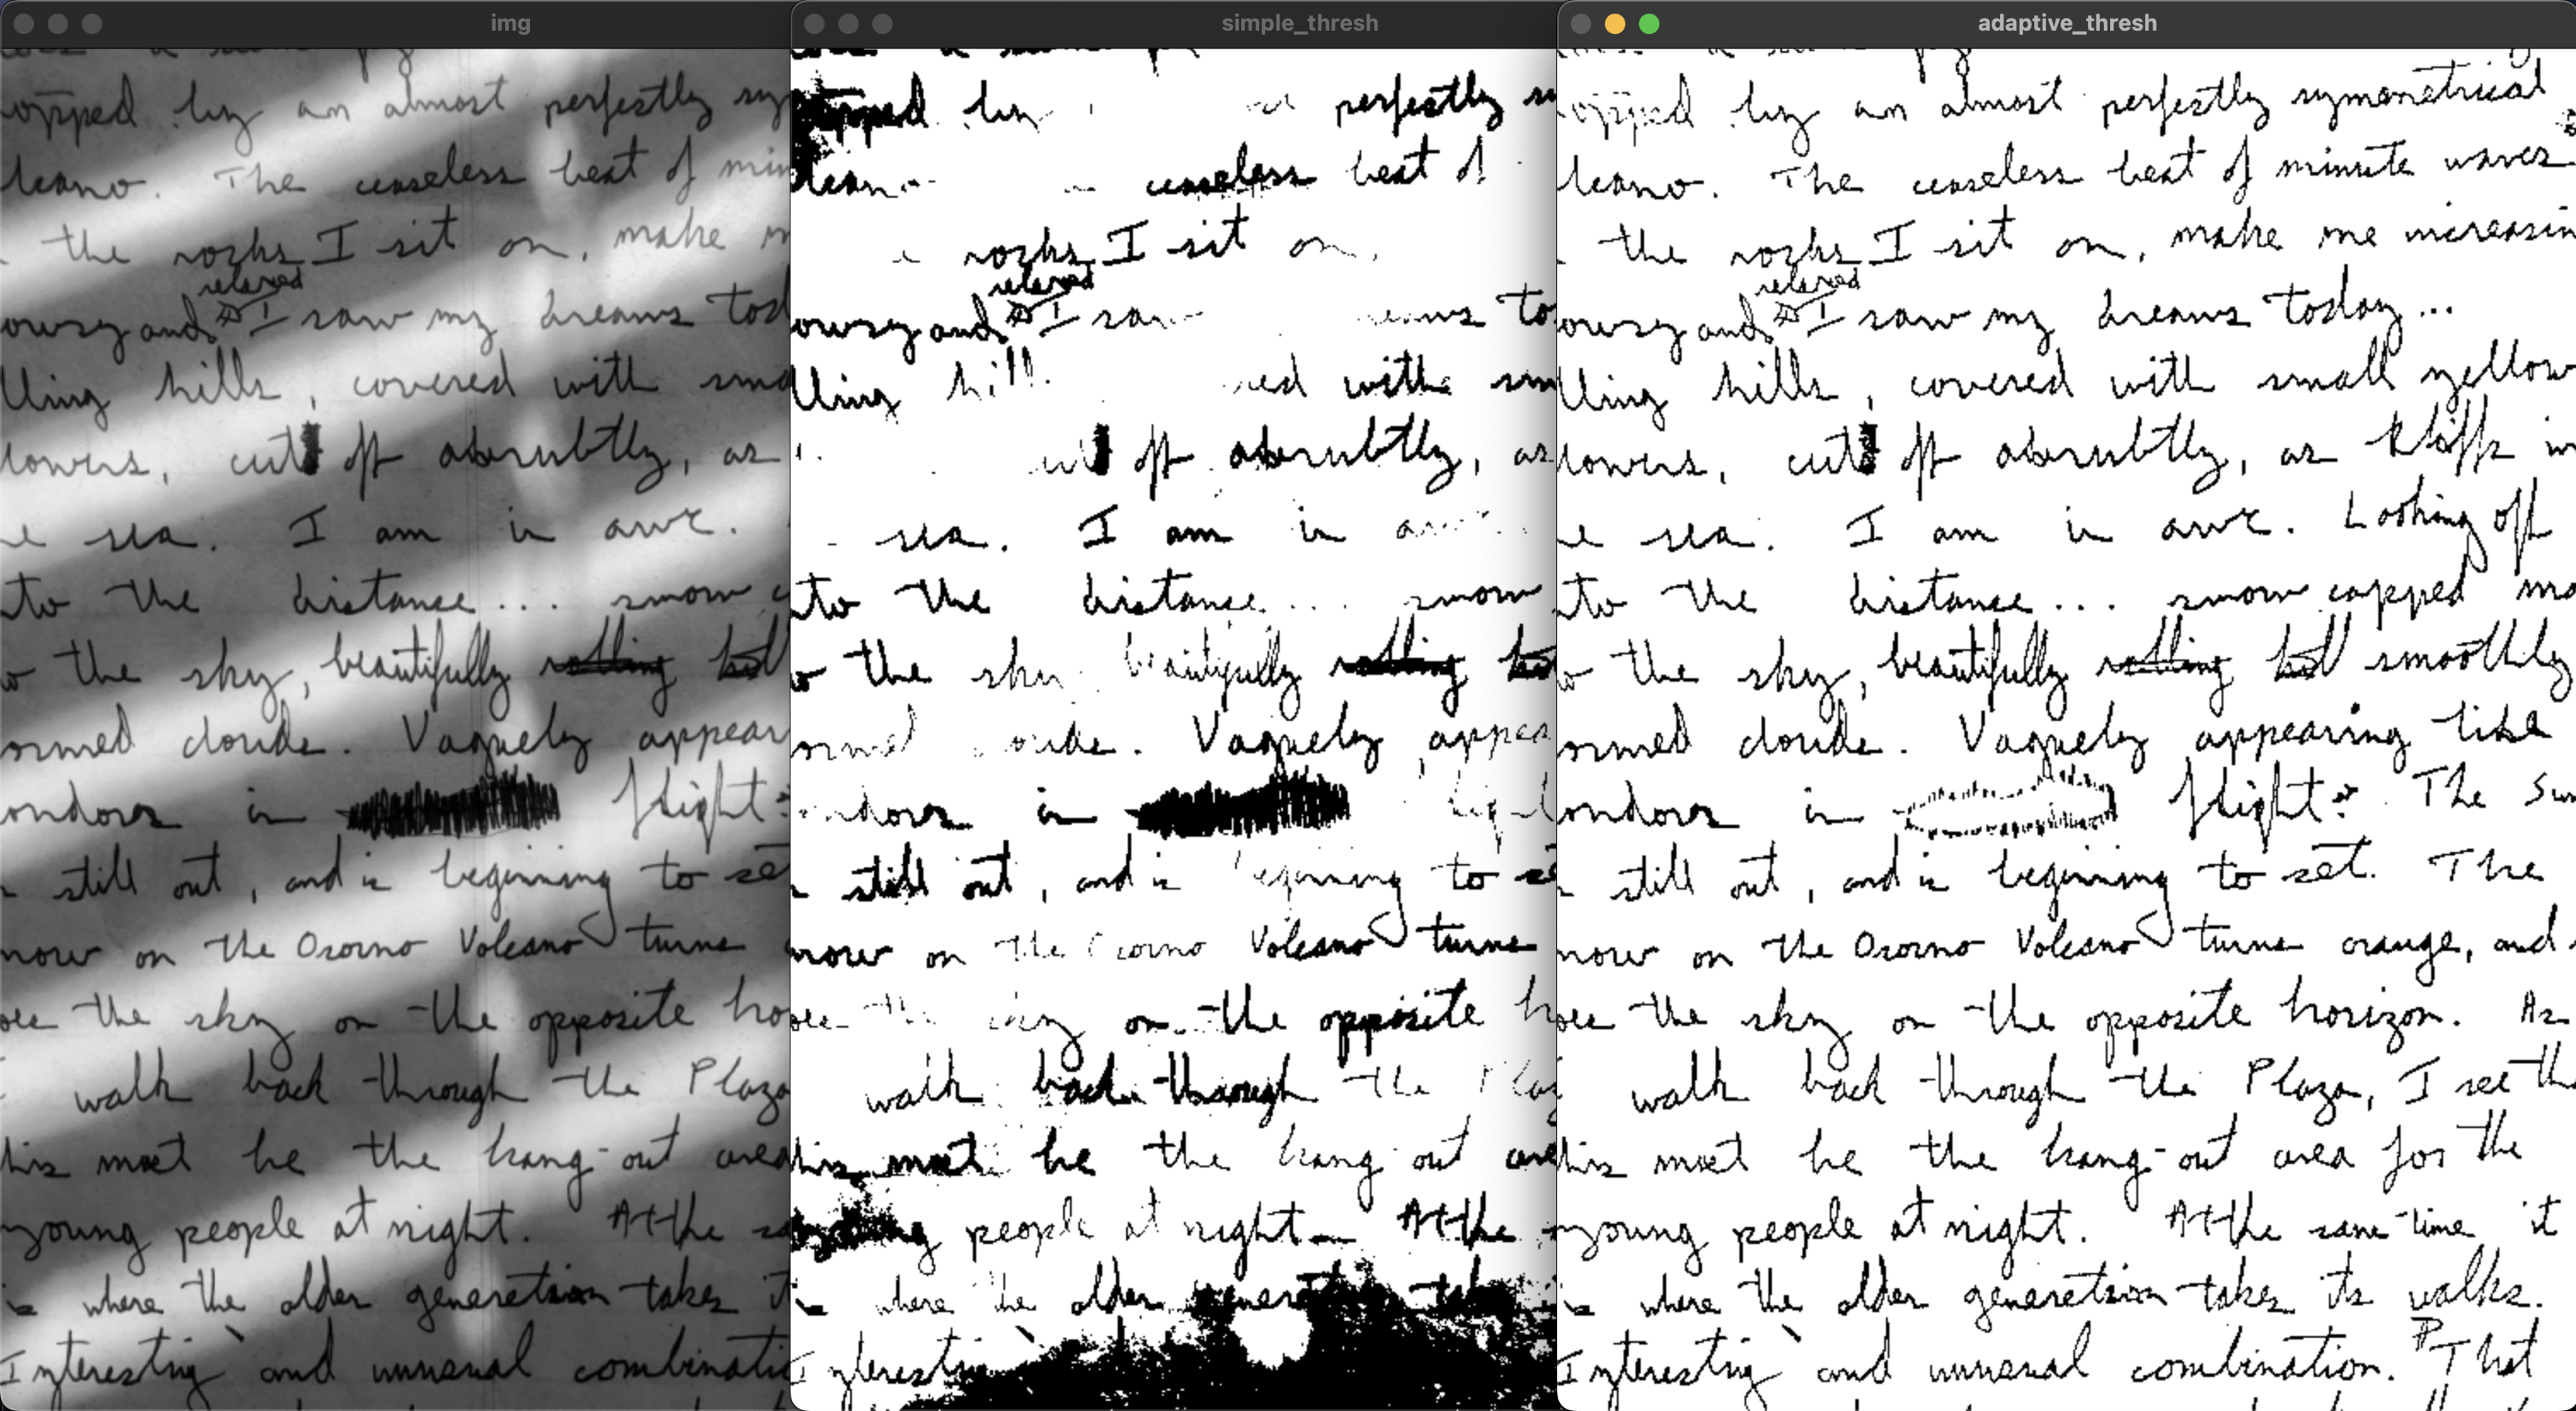 img
opped by an almost perfectly sy
lcano. The ceaseless beat of min
the rocks I sit on, make m
relaxed
owsy and I saw my dreams tod
lling hills, covered with sma
lowers, cut off abrubtly, as
e sea. I am in awe.
to the distance... snow c
the sky, beautifully rolling
ormed clouds. Vaguely appear
ondors in flight
still out, and is beginning to set
now on the Osorno Volcano turns
the sky on the opposite ho
walk back through the Plaza
his must be the hang-out area
young people at night. At the sa
where the older generation takes it
Interesting and unusual combinati
simple_thresh
opped by perfectly
lcan ceaseless beat of
rocks I sit on,
relaxed
owsy and I saw to
lling with sm
off abrubtly, as
sea. I am in
to the distance... snow
the sky beautifully rolling
Vaguely appea
ndors in
still out, and is eginning to se
now on the Volcano turns
on the opposite h
walk back through the Plaz
his must be the hang out area
people at night At the
where the older takes
Interesting
adaptive_thresh
opped by an almost perfectly symmetrical
lcano. The ceaseless beat of minute waves
the rocks I sit on, make me increasin
relaxed
owsy and I saw my dreams today...
lling hills, covered with small yellow
lowers, cut off abrubtly, as kliffs in
e sea. I am in awe. Looking off
to the distance... snow capped mo
the sky, beautifully rolling smoothly
ormed clouds. Vaguely appearing like
ondors in flight. The Sun
still out, and is beginning to set. The
now on the Osorno Volcano turns orange, and
the sky on the opposite horizon. As
walk back through the Plaza, I see th
his must be the hang-out area for the
young people at night. At the same time it
where the older generation takes its walks.
Interesting and unusual combination. That